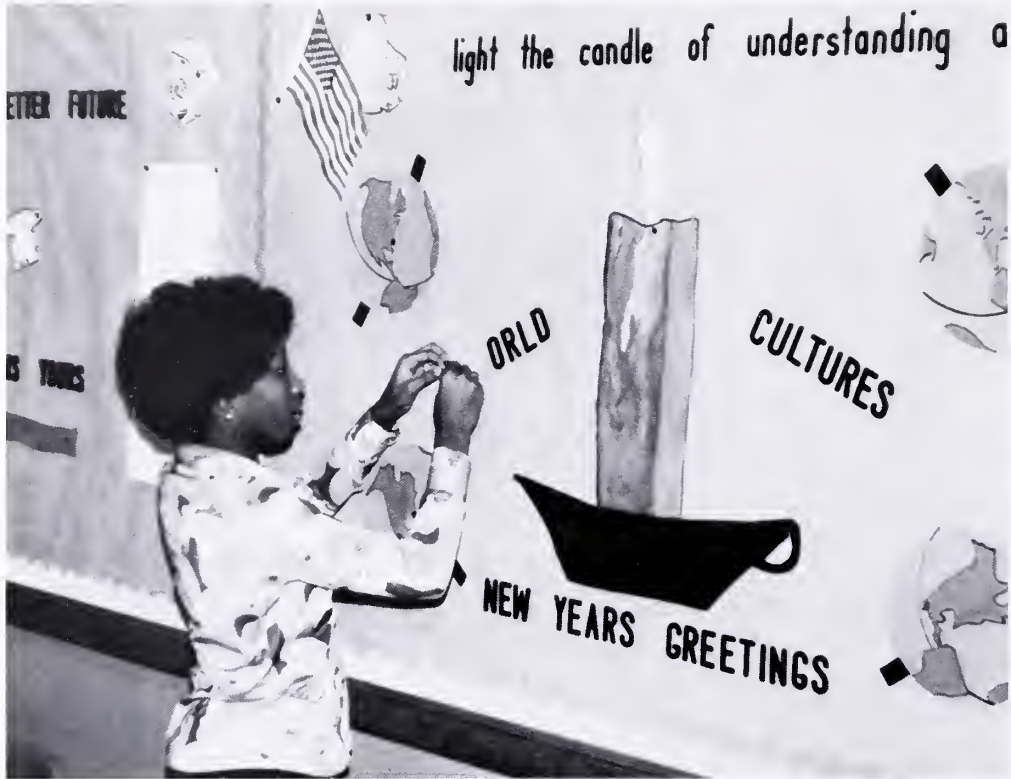 light the candle of understanding a
ETTER FUTURE
ORLD
CULTURES
YOURS
NEW YEARS GREETINGS